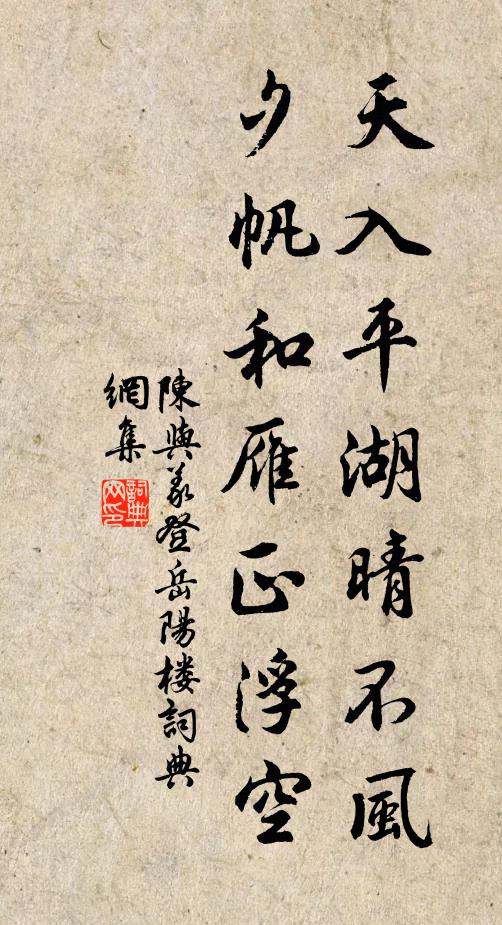 天入平湖晴不風
夕帆和雁正浮空
陳與義登岳陽楼詞典
網集
詞典网印